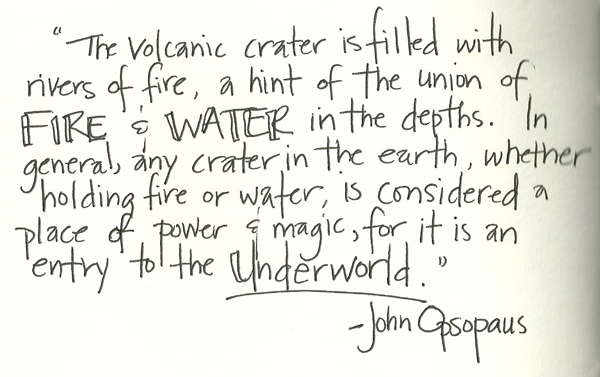 "The volcanic crater is filled with
rivers of fire, a hint of the union of
FIRE & WATER in the depths. In
general, any crater in the earth, whether
holding fire or water, is considered a
place of power & magic, for it is an
entry to the Underworld."
-John Opsopaus